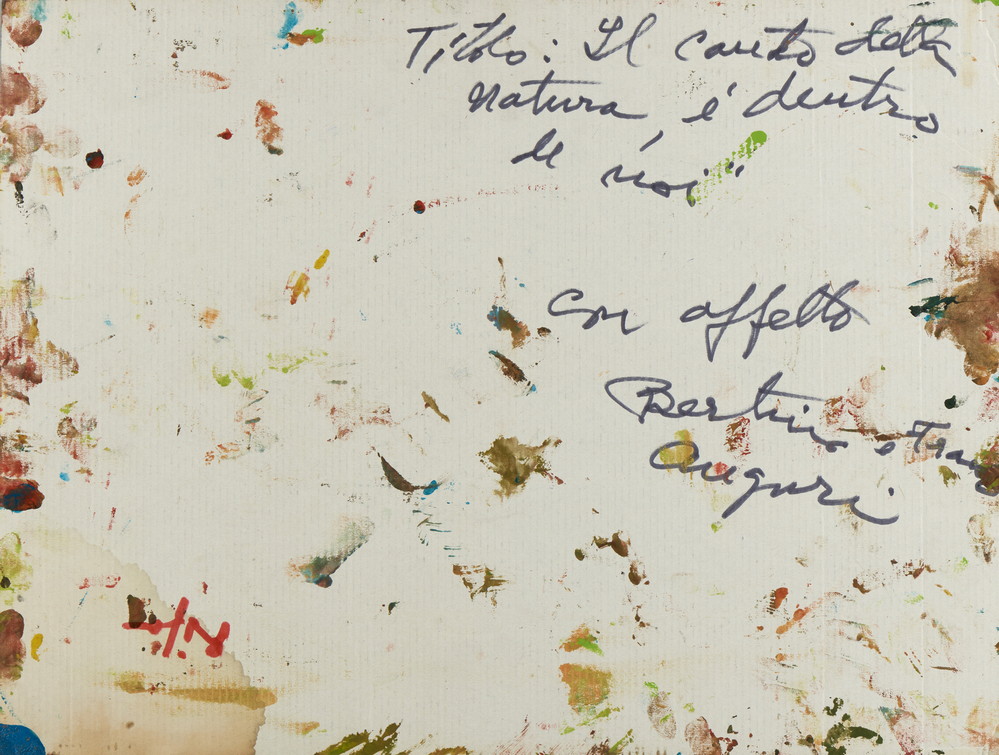 Titolo: Il canto della
natura, è dentro
di noi"
con affetto
Bertino e
Auguri